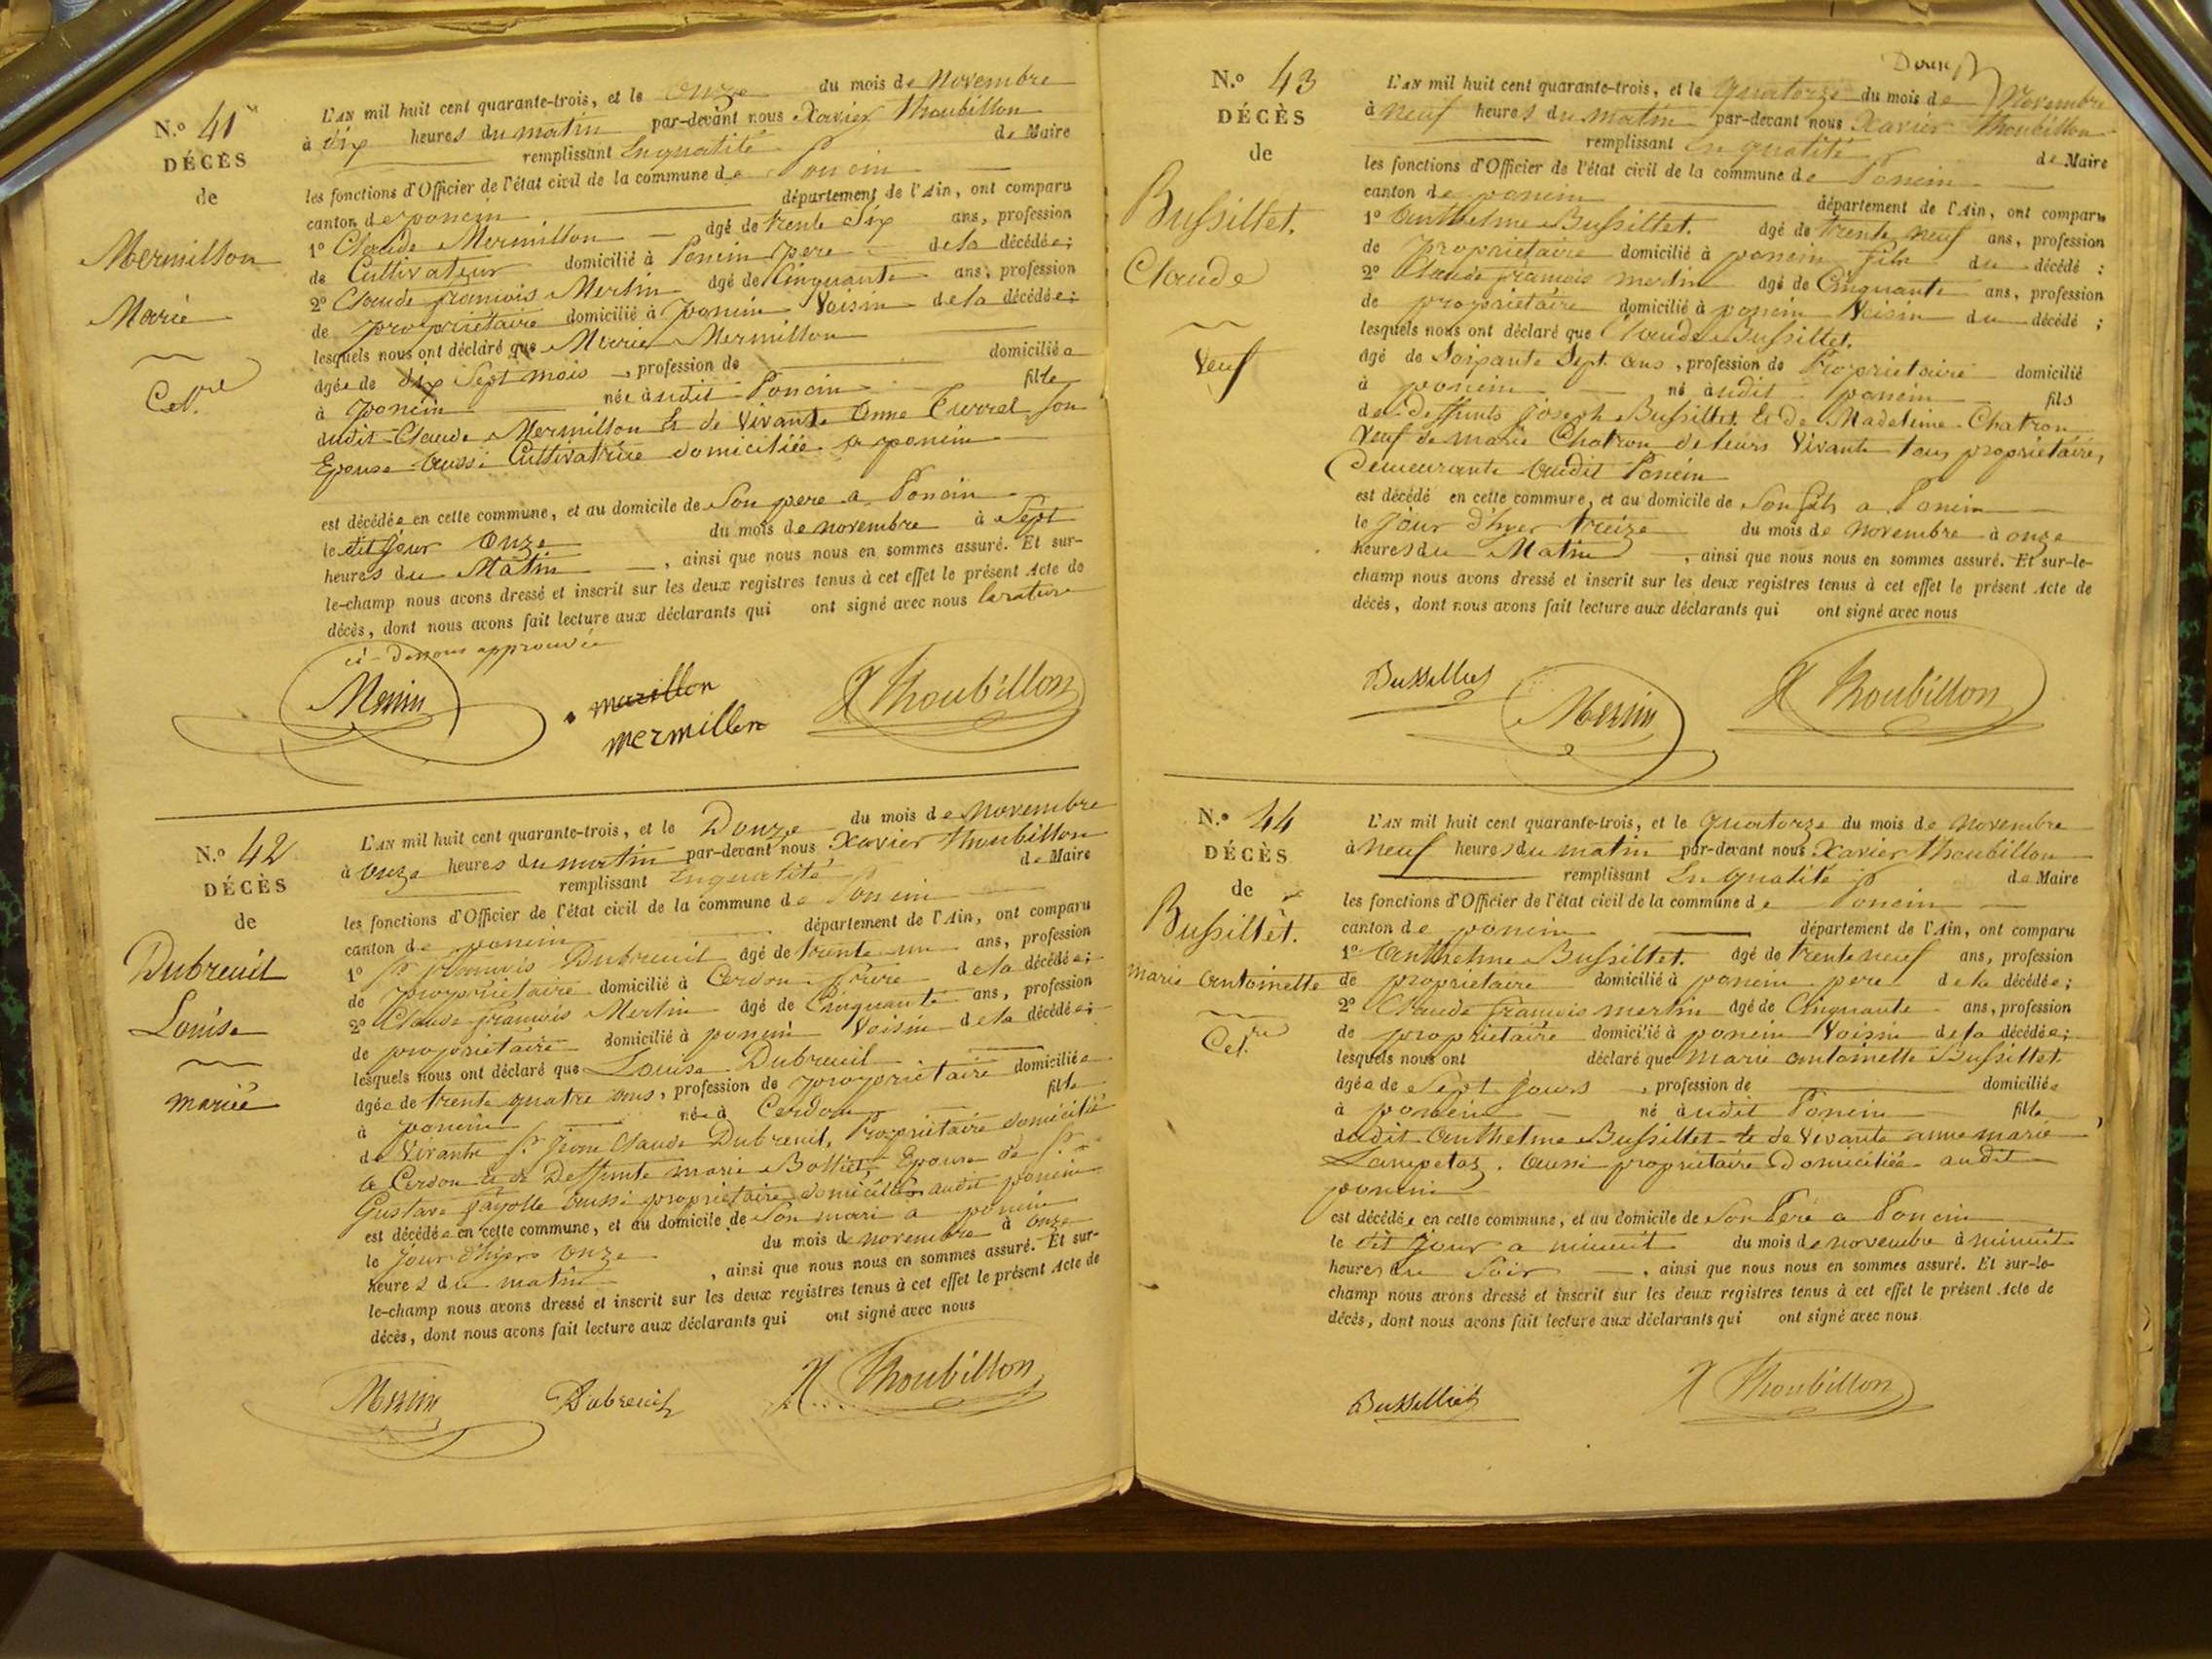 N.º 41
DÉCÈS
de
Mermillon
Marie
Cel.re
L'AN mil huit cent quarante-trois, et le onze du mois de Novembre
à dix heures du matin par-devant nous Xavier Thoubillon
remplissant En qualité de Maire
les fonctions d'Officier de l'état civil de la commune de Poncin
canton de poncin département de l'Ain, ont comparu
1º Claude Mermillon âgé de trente Six ans, profession
de Cultivateur domicilié à Poncin pere de la décédée;
2º Claude françois Merlin âgé de Cinquante ans, profession
de propriétaire domicilié à poncin Voisin de la décédée;
lesquels nous ont déclaré que Marie Mermillon
âgée de dix Sept mois, profession de domiciliée
à poncin née audit Poncin fille
dudit Claude Mermillon Et de Vivante Anne Turrel Son
Epouse aussi Cultivatrice domiciliée a poncin
est décédée en cette commune, et au domicile de Son pere a Poncin
le dit jour onze du mois de novembre à Sept
heures du Matin, ainsi que nous nous en sommes assuré. Et sur-
le-champ nous avons dressé et inscrit sur les deux registres tenus à cet effet le présent Acte de
décès, dont nous avons fait lecture aux déclarants qui ont signé avec nous la rature
ci-dessous approuvée
Merlin
mermillon
X Thoubillon
N.º 42
DÉCÈS
de
Dubreuil
Louise
mariée
L'AN mil huit cent quarante-trois, et le Douze du mois de Novembre
à onze heures du matin par-devant nous Xavier Thoubillon
remplissant En qualité de Maire
les fonctions d'Officier de l'état civil de la commune de Poncin
canton de poncin département de l'Ain, ont comparu
1º Sr françois Dubreuil âgé de trente un ans, profession
de propriétaire domicilié à Cerdon frère de la décédée;
2º Claude françois Merlin âgé de Cinquante ans, profession
de propriétaire domicilié à poncin Voisin de la décédée;
lesquels nous ont déclaré que Louise Dubreuil
âgée de trente quatre ans, profession de propriétaire domiciliée
à poncin née à Cerdon fille
de Vivant Sr jean Claude Dubreuil, Propriétaire domicilié
a Cerdon et de Deffunte marie Bolliet, Epouse de Sr
Gustave fayolle aussi propriétaire domiciliés audit poncin
est décédée en cette commune, et au domicile de Son mari a poncin
le jour d'hyer onze du mois de novembre à onze
heures du matin, ainsi que nous nous en sommes assuré. Et sur-
le-champ nous avons dressé et inscrit sur les deux registres tenus à cet effet le présent Acte de
décès, dont nous avons fait lecture aux déclarants qui ont signé avec nous
Merlin
Dubreuil
X Thoubillon
N.º 43
DÉCÈS
de
Bussillet.
Claude
Veuf
L'AN mil huit cent quarante-trois, et le quatorze du mois de Novembre
à neuf heures du matin par-devant nous Xavier Thoubillon
remplissant En qualité de Maire
les fonctions d'Officier de l'état civil de la commune de Poncin
canton de poncin département de l'Ain, ont comparu
1º Anthelme Bussillet. âgé de trente neuf ans, profession
de propriétaire domicilié à poncin fils du décédé;
2º Claude françois merlin âgé de Cinquante ans, profession
de propriétaire domicilié à poncin Voisin du décédé;
lesquels nous ont déclaré que Claude Bussillet.
âgé de Soixante Sept ans, profession de Propriétaire domicilié
à poncin né audit poncin fils
de deffunts joseph Bussillet Et de Madeleine Chatron
Veuf de marie Chatron de leurs Vivants tous propriétaires,
demeurants audit Poncin
est décédé en cette commune, et au domicile de Son fils a Poncin
le jour d'hyer treize du mois de novembre à onze
heures du Matin, ainsi que nous nous en sommes assuré. Et sur-le-
champ nous avons dressé et inscrit sur les deux registres tenus à cet effet le présent Acte de
décès, dont nous avons fait lecture aux déclarants qui ont signé avec nous
Bussilliet
Merlin
X Thoubillon
N.º 44
DÉCÈS
de
Bussillet.
marie antoinette
Cel.re
L'AN mil huit cent quarante-trois, et le quatorze du mois de novembre
à neuf heures du matin par-devant nous Xavier Thoubillon
remplissant En qualité de Maire
les fonctions d'Officier de l'état civil de la commune de Poncin
canton de poncin département de l'Ain, ont comparu
1º Anthelme Bussillet. âgé de trente neuf ans, profession
de propriétaire domicilié à poncin pere de la décédée;
2º Claude françois merlin âgé de Cinquante ans, profession
de propriétaire domicilié à poncin Voisin de la décédée;
lesquels nous ont déclaré que Marie antoinette Bussillet
âgée de Sept jours, profession de domiciliée
à poncin né audit Poncin fille
dudit Anthelme Bussillet Et de Vivante anne marie
aussi propriétaire Domiciliée audit
poncin
est décédée en cette commune, et au domicile de Son Père a Poncin
le dit jour a minuit du mois de novembre à minuit
heures du Soir, ainsi que nous nous en sommes assuré. Et sur-le-
champ nous avons dressé et inscrit sur les deux registres tenus à cet effet le présent Acte de
décès, dont nous avons fait lecture aux déclarants qui ont signé avec nous
Bussilliet
X Thoubillon